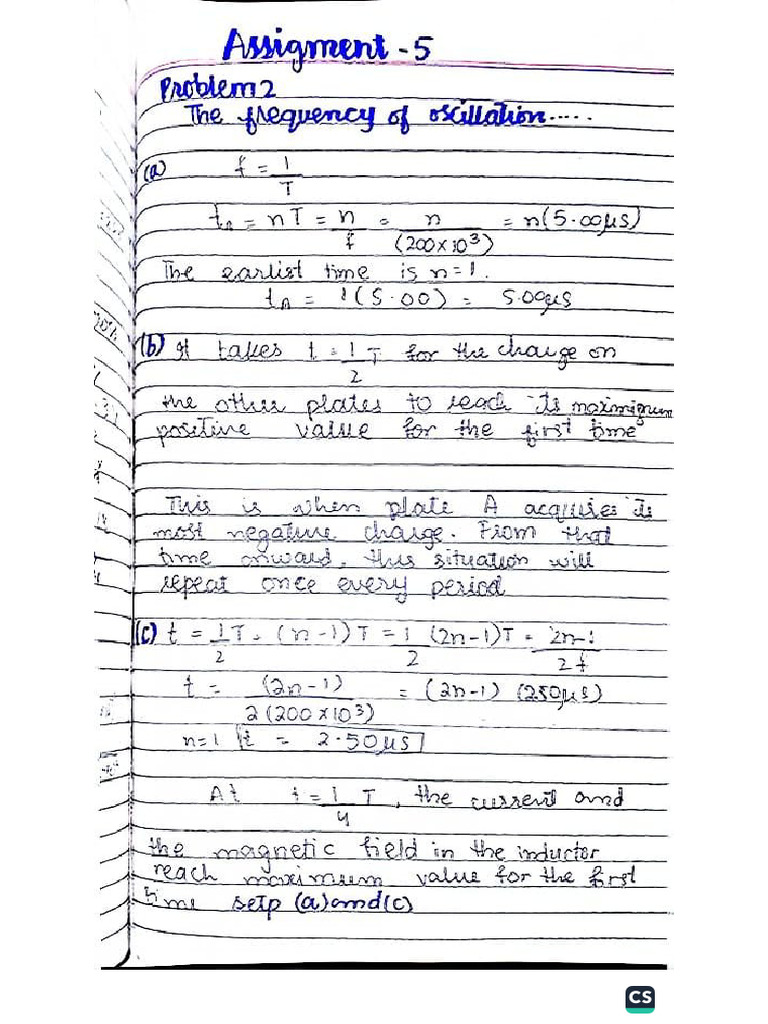 Assigment - 5
Problem 2
The frequency of oscillation.....
(a) f = 1/T
tA = nT = n/f = n/(200×10³) = n(5.00μs)
The earlist time is n=1.
tA = 1(5.00) = 5.00μs
(b) It takes t = 1/2 T for the charge on
the other plates to reach its maximignum
positive value for the first time
This is when plate A acquires its
most negative charge. From that
time onward, this situation will
repeat once every period
(c) t = 1/2 T - (n-1)T = 1/2 (2n-1)T = 2n-1/2f
t = (2n-1)/2(200×10³) = (2n-1) (250μs)
n=1 t = 2.50μs
At t = 1/4 T, the current and
the magnetic field in the inductor
reach maximum value for the first
time setp (a) and (c)
CS